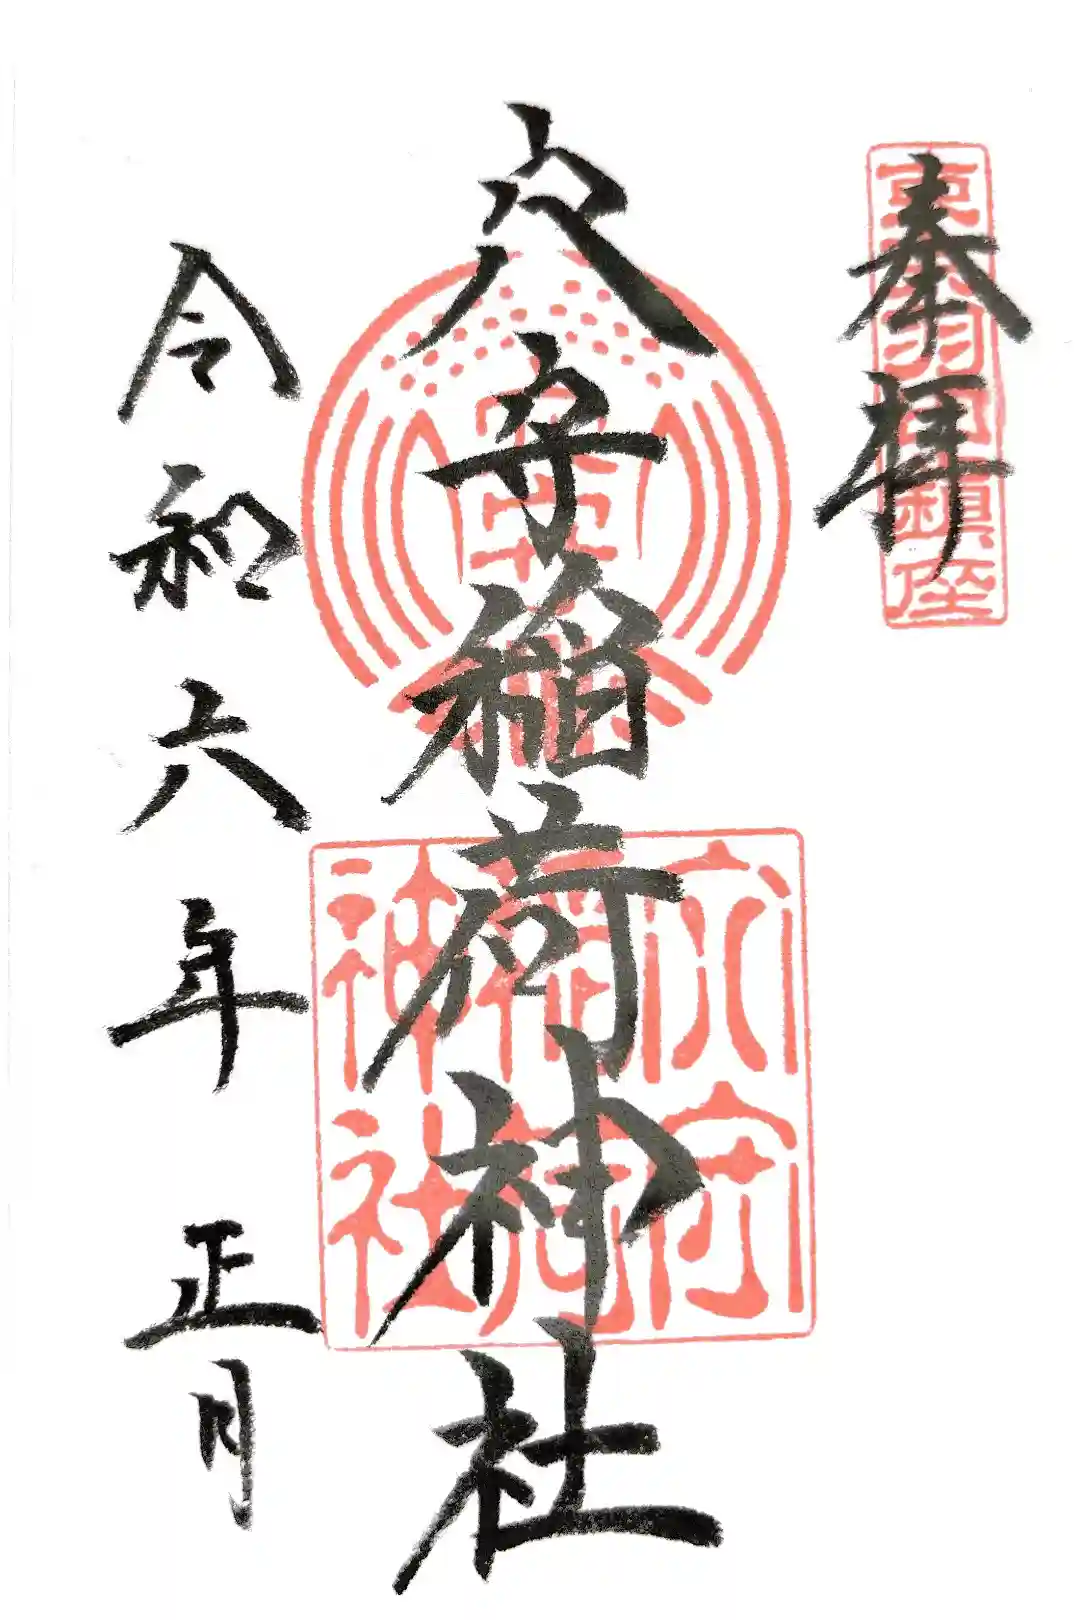 奉拝
東音羽町鎮座
穴守稲荷神社
穴守稲荷神社
令和六年正月